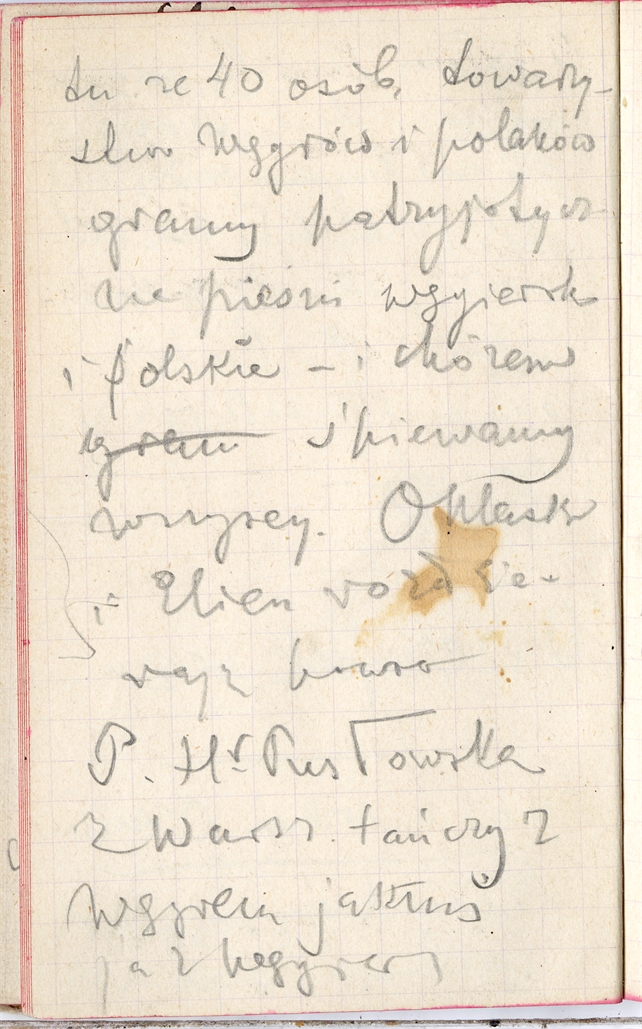 tu ze 40 osób, towarzy-
stwo Węgrów i polaków
gramy patryjotycz
ne pieśni węgiersk
i polskie – i chórem
gram śpiewamy
wszyscy. Oklaski
i Elien rozdzie-
rają brawo
P. Hr Pusłowska
z Warsz. tańczy z
Węgrem jakimś
ja z